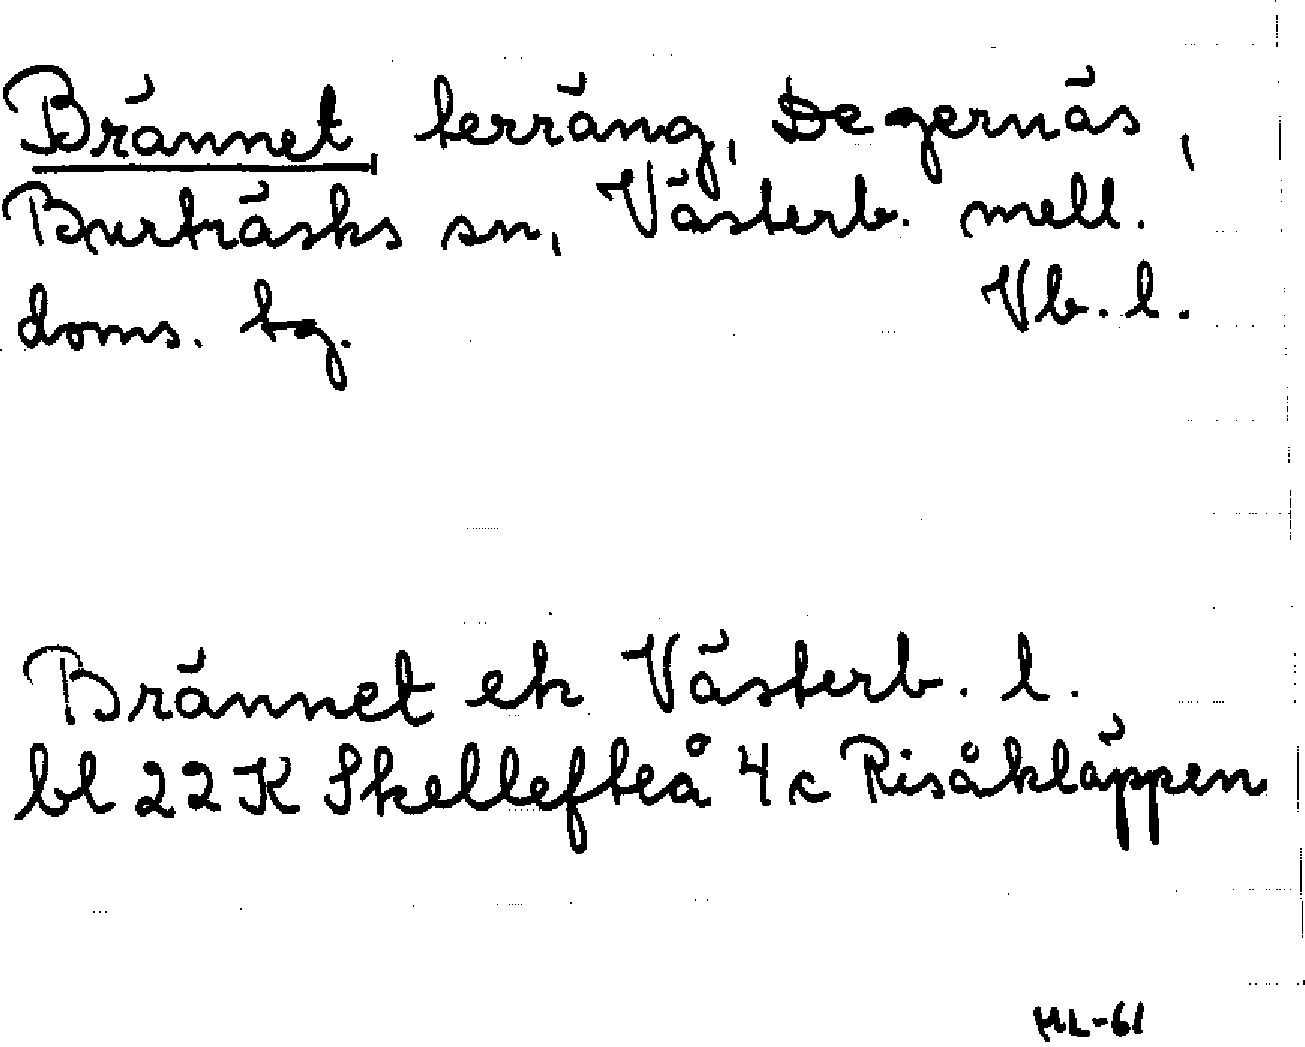 Brännet, terräng, Degernäs,
Burträsks sn, Västerb. mell.
doms. bg. Vb. l.
Brännet ek Västerb. l.
bl 22 K Skellefteå 4c Risåkläppen
HL-61